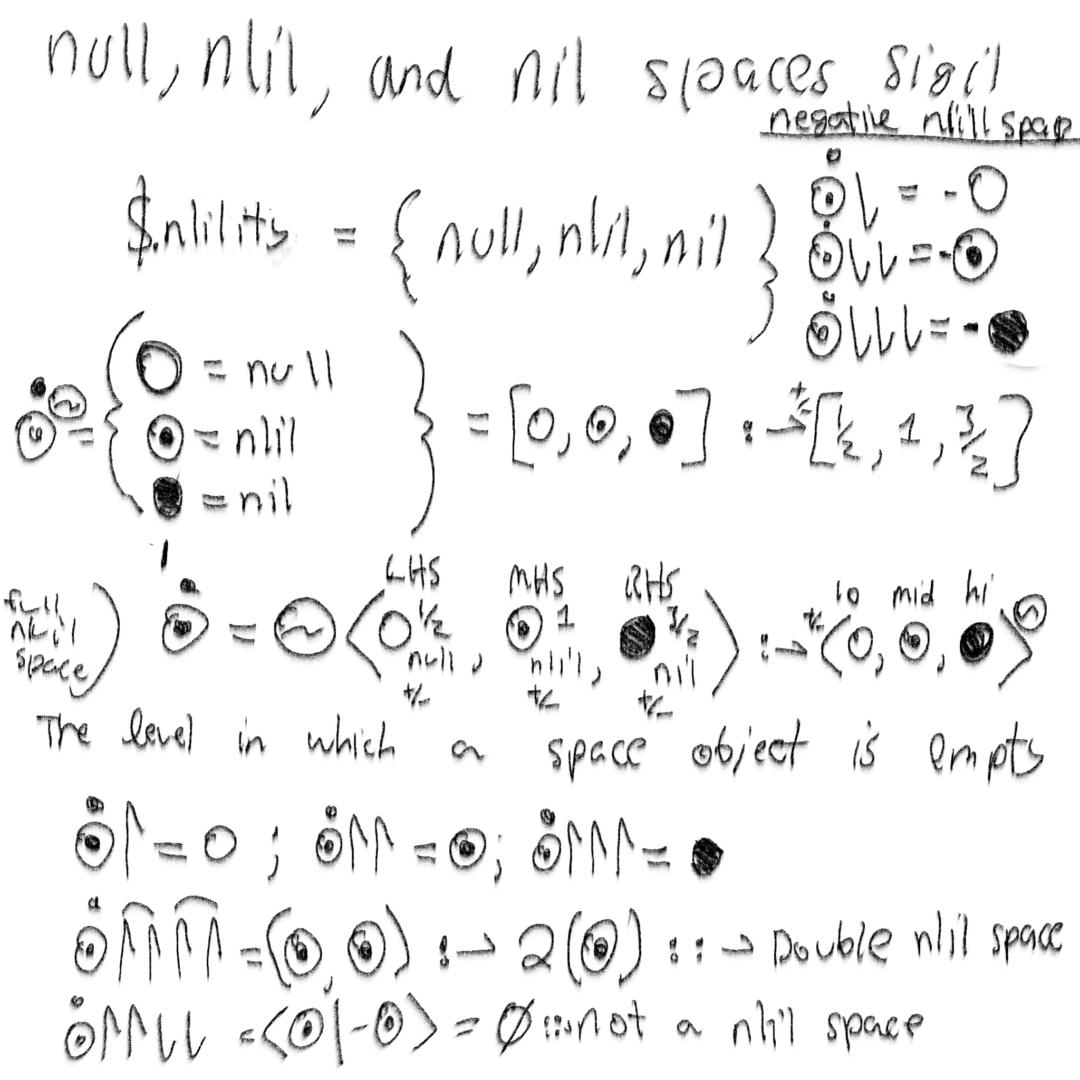 null, nlil, and nil spaces sigil
negative nlill space
$.nlility = { null, nlil, nil }
⊙̇⇂ = -○
⊙̇⇂⇂ = -⊙
⊙̇⇂⇂⇂ = -●
= { ○ = null
⊙ = nlil
● = nil } = [○, ⊙, ●] :→ +/- [1/2, 1, 3/2]
LHS MHS RHS
lo mid hi
full nlil space) = ~ <○ 1/2 null +/-, ⊙ 1 nlil +/-, ● 3/2 nil +/-> :→ +/- <○, ⊙, ●>
The level in which a space object is empty
⊙̇↾ = ○ ; ⊙̇↾↾ = ⊙; ⊙̇↾↾↾ = ●
⊙̇↾↾↾↾ = (⊙, ⊙) :→ 2(⊙) ::→ Double nlil space
⊙̇↾↾⇂⇂ = <⊙|-⊙> = Ø ::: not a nlil space